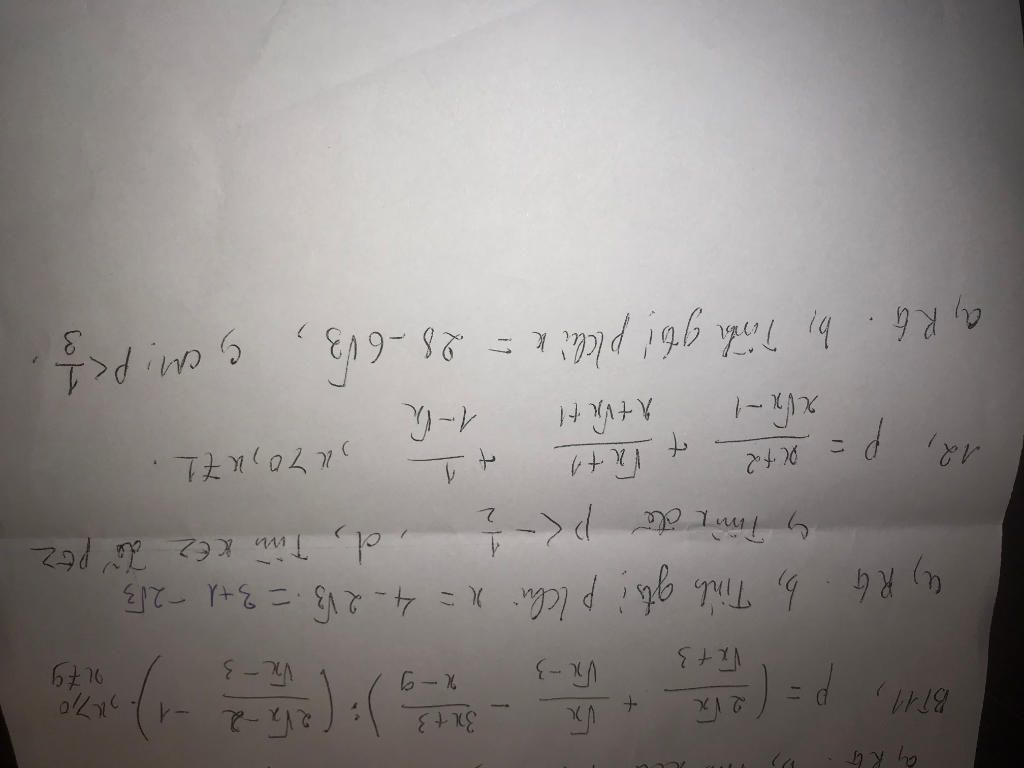 a, RG. b,
BT11, P = (2√x/(√x+3) + √x/(√x-3) - (3x+3)/(x-9)) : ((2√x-2)/(√x-3) - 1), x≥0, x≠9
a, RG. b, Tính gtri P khi x = 4-2√3. = 3+1-2√3
c, Tìm x để P < -1/2, d, Tìm x∈Z để P∈Z
12, P = (x+2)/(x√x-1) + (√x+1)/(x+√x+1) + 1/(1-√x), x≥0, x≠1.
a, RG. b, Tính gtri P khi x = 28-6√3, c, CM: P < 1/3.